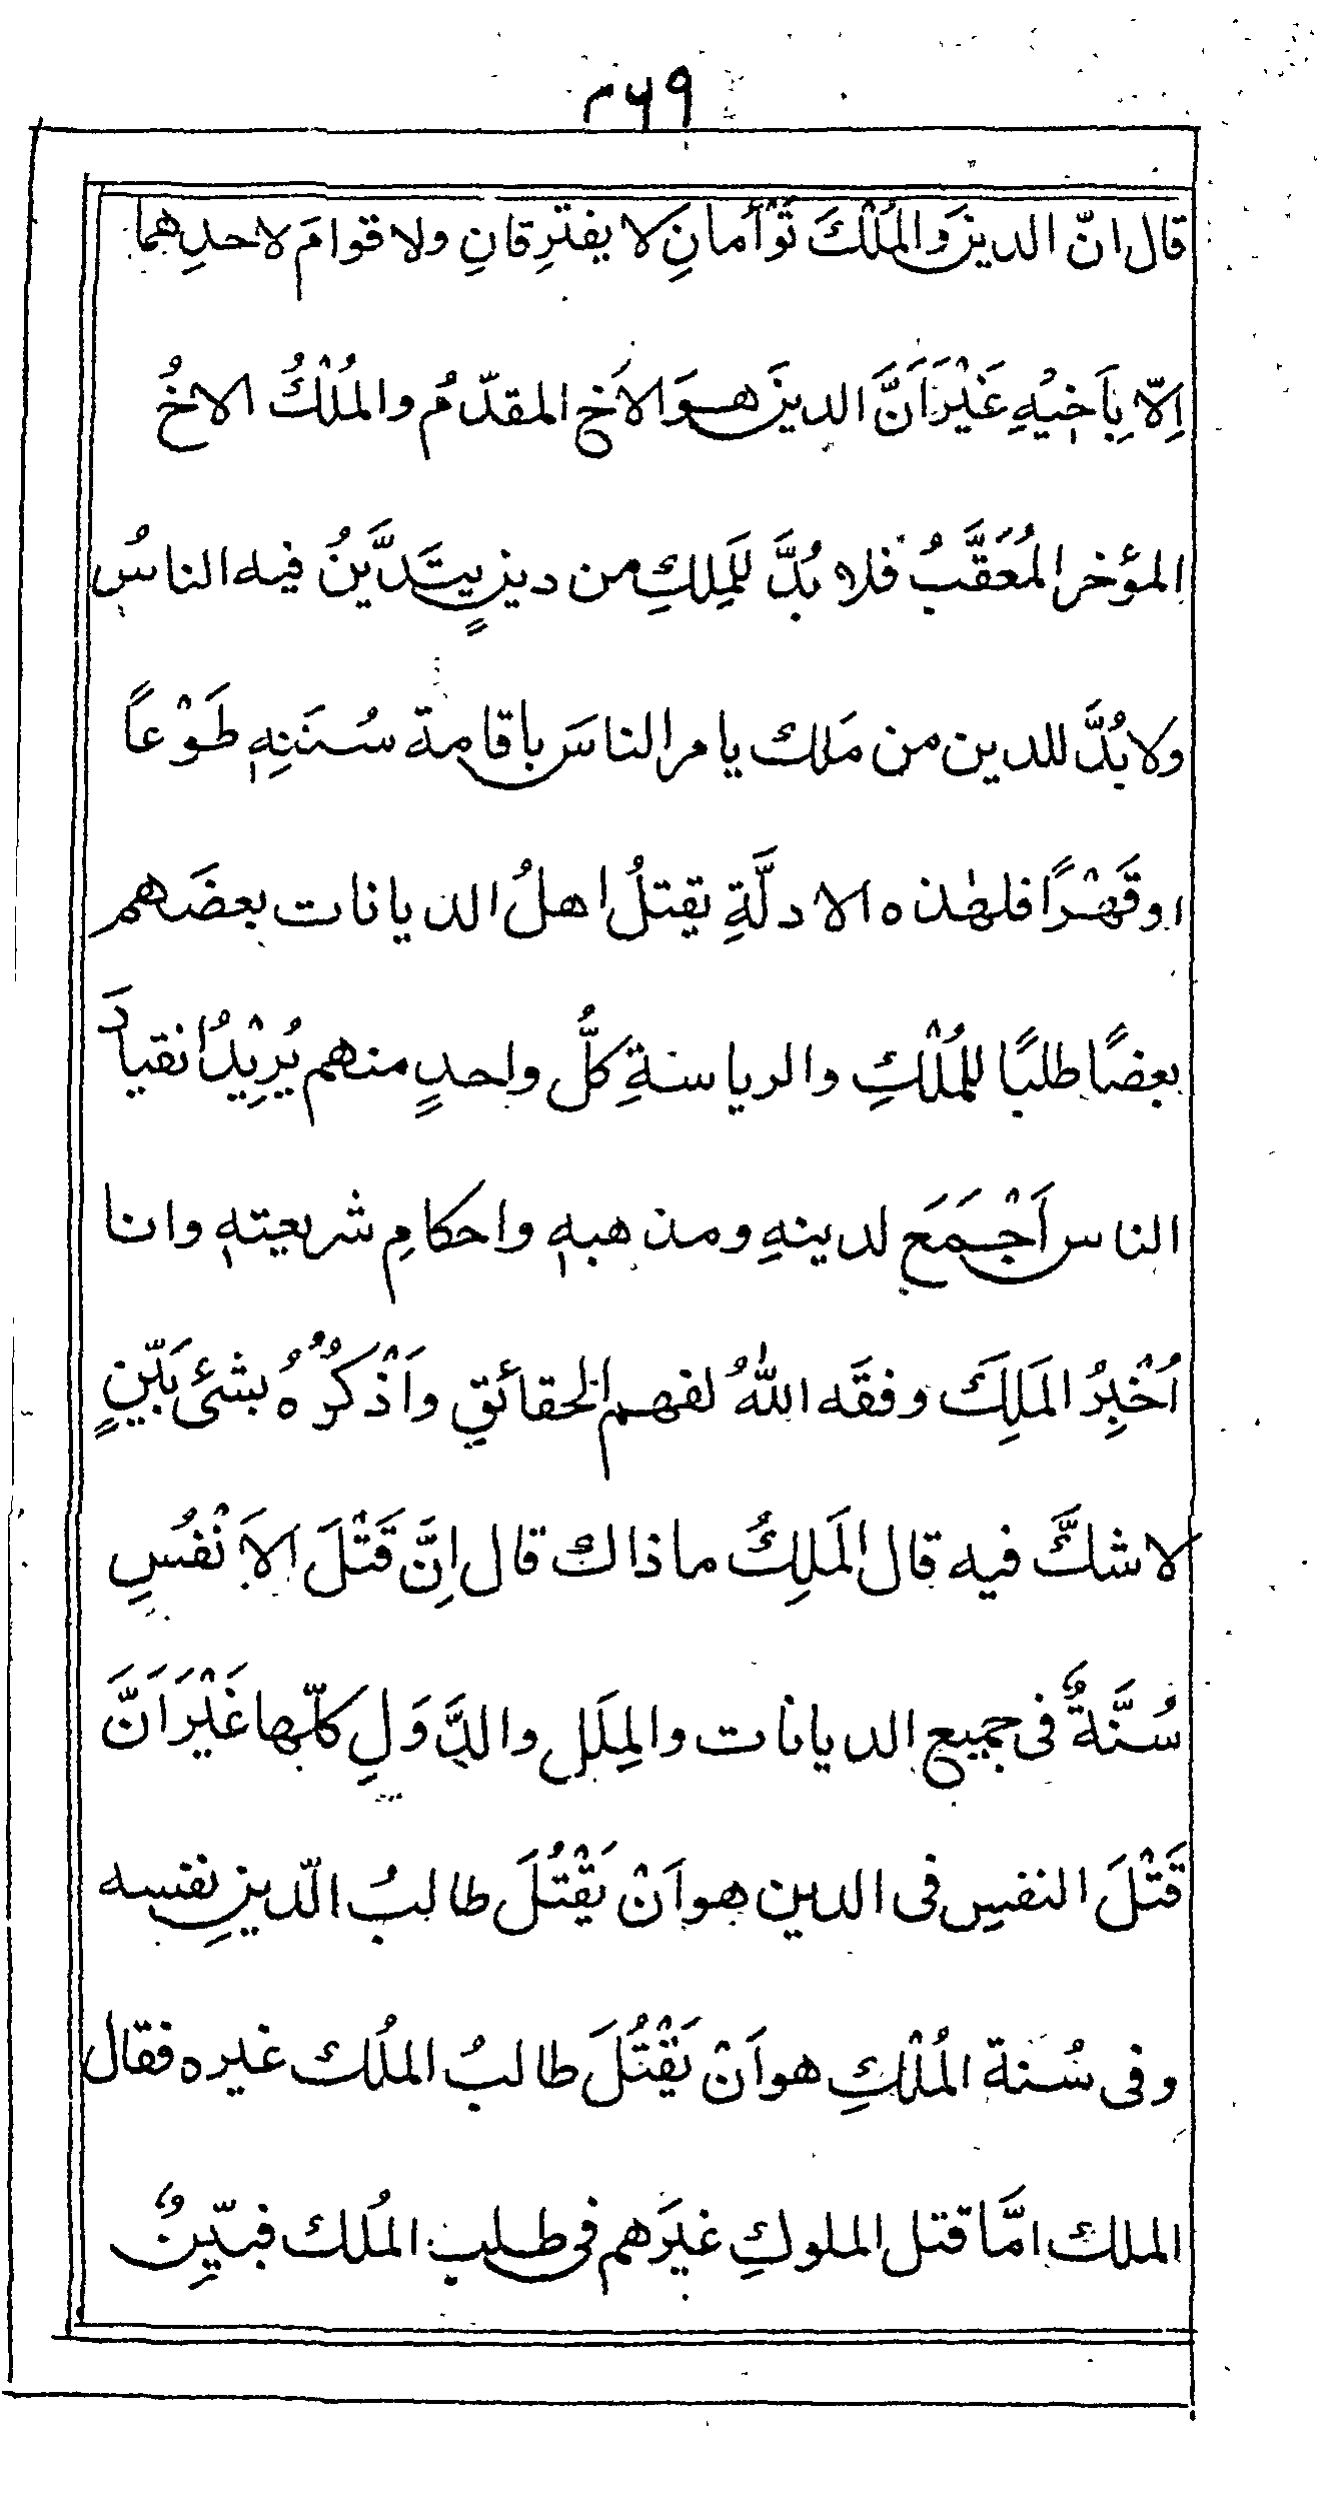 ۲۶۹
قال انّ الدينَ والمُلْكَ تَوْأَمانِ لا يفتَرِقانِ ولا قوامَ لاحدِهما
اِلّا بِاَخيْهِ غَيْرَ اَنَّ الدينَ هوَ الاَخ المقدّمُ والمُلْكُ الاخُ
المؤخر المُعَقَّبُ فلا بُدَّ للمَلِكِ من دينٍ يتَدَيَّنُ فيه الناسُ
ولا بُدَّ للدين من مَلك يامر الناسَ باقامة سُنَنِهٖ طَوْعاً
او قَهْرًا فلهٰذه الادلَّةِ يقتلُ اهلُ الديانات بعضَهم
بعضًا طلبًا للمُلْكِ والرياسةِ كلُّ واحدٍ منهم يُرِيْدُ انقيادَ
الناس اَجْمَعَ لدينهِ ومذهبهٖ واحكامِ شريعتهٖ وانا
اُخْبِرُ المَلِكَ وفقَه اللّٰهُ لفهم الحقائق واَذْكُرُهُ بشئ بَيّنٍ
لا شكَّ فيه قال المَلِكُ ماذاك قال اِنَّ قَتْلَ الاَنْفُسِ
سُنَّةٌ فى جميع الديانات والمِلَل والدَّوَلِ كلّها غَيْرَ اَنَّ
قَتْلَ النفسِ فى الدين هو اَنْ يَقْتُلَ طالبُ الدّينِ نفسه
وفى سُنة المُلْكِ هو اَنْ يَقْتُلَ طالبُ الملُك غيره فقال
الملك امَّا قتل الملوكِ غيرَهم فى طلب المُلك فبيّنٌ